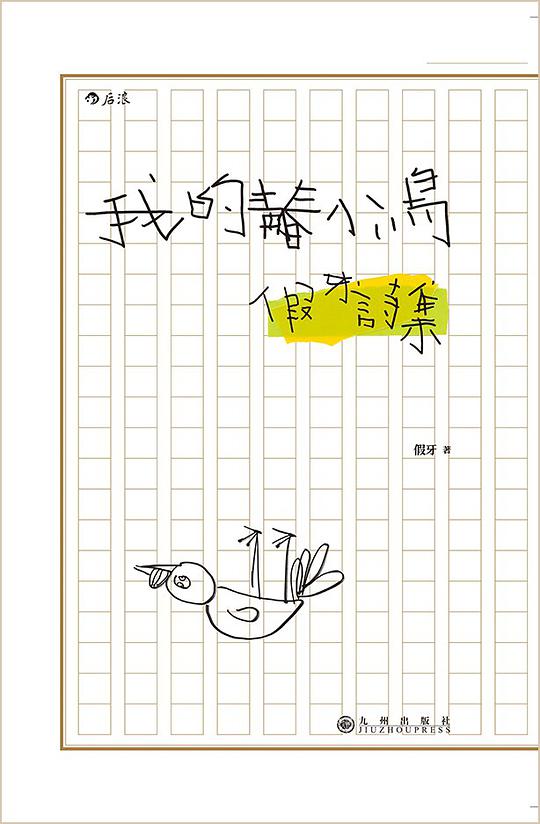 后浪
我的青春小鳥
假牙詩集
假牙 著
九州出版社
JIUZHOUPRESS